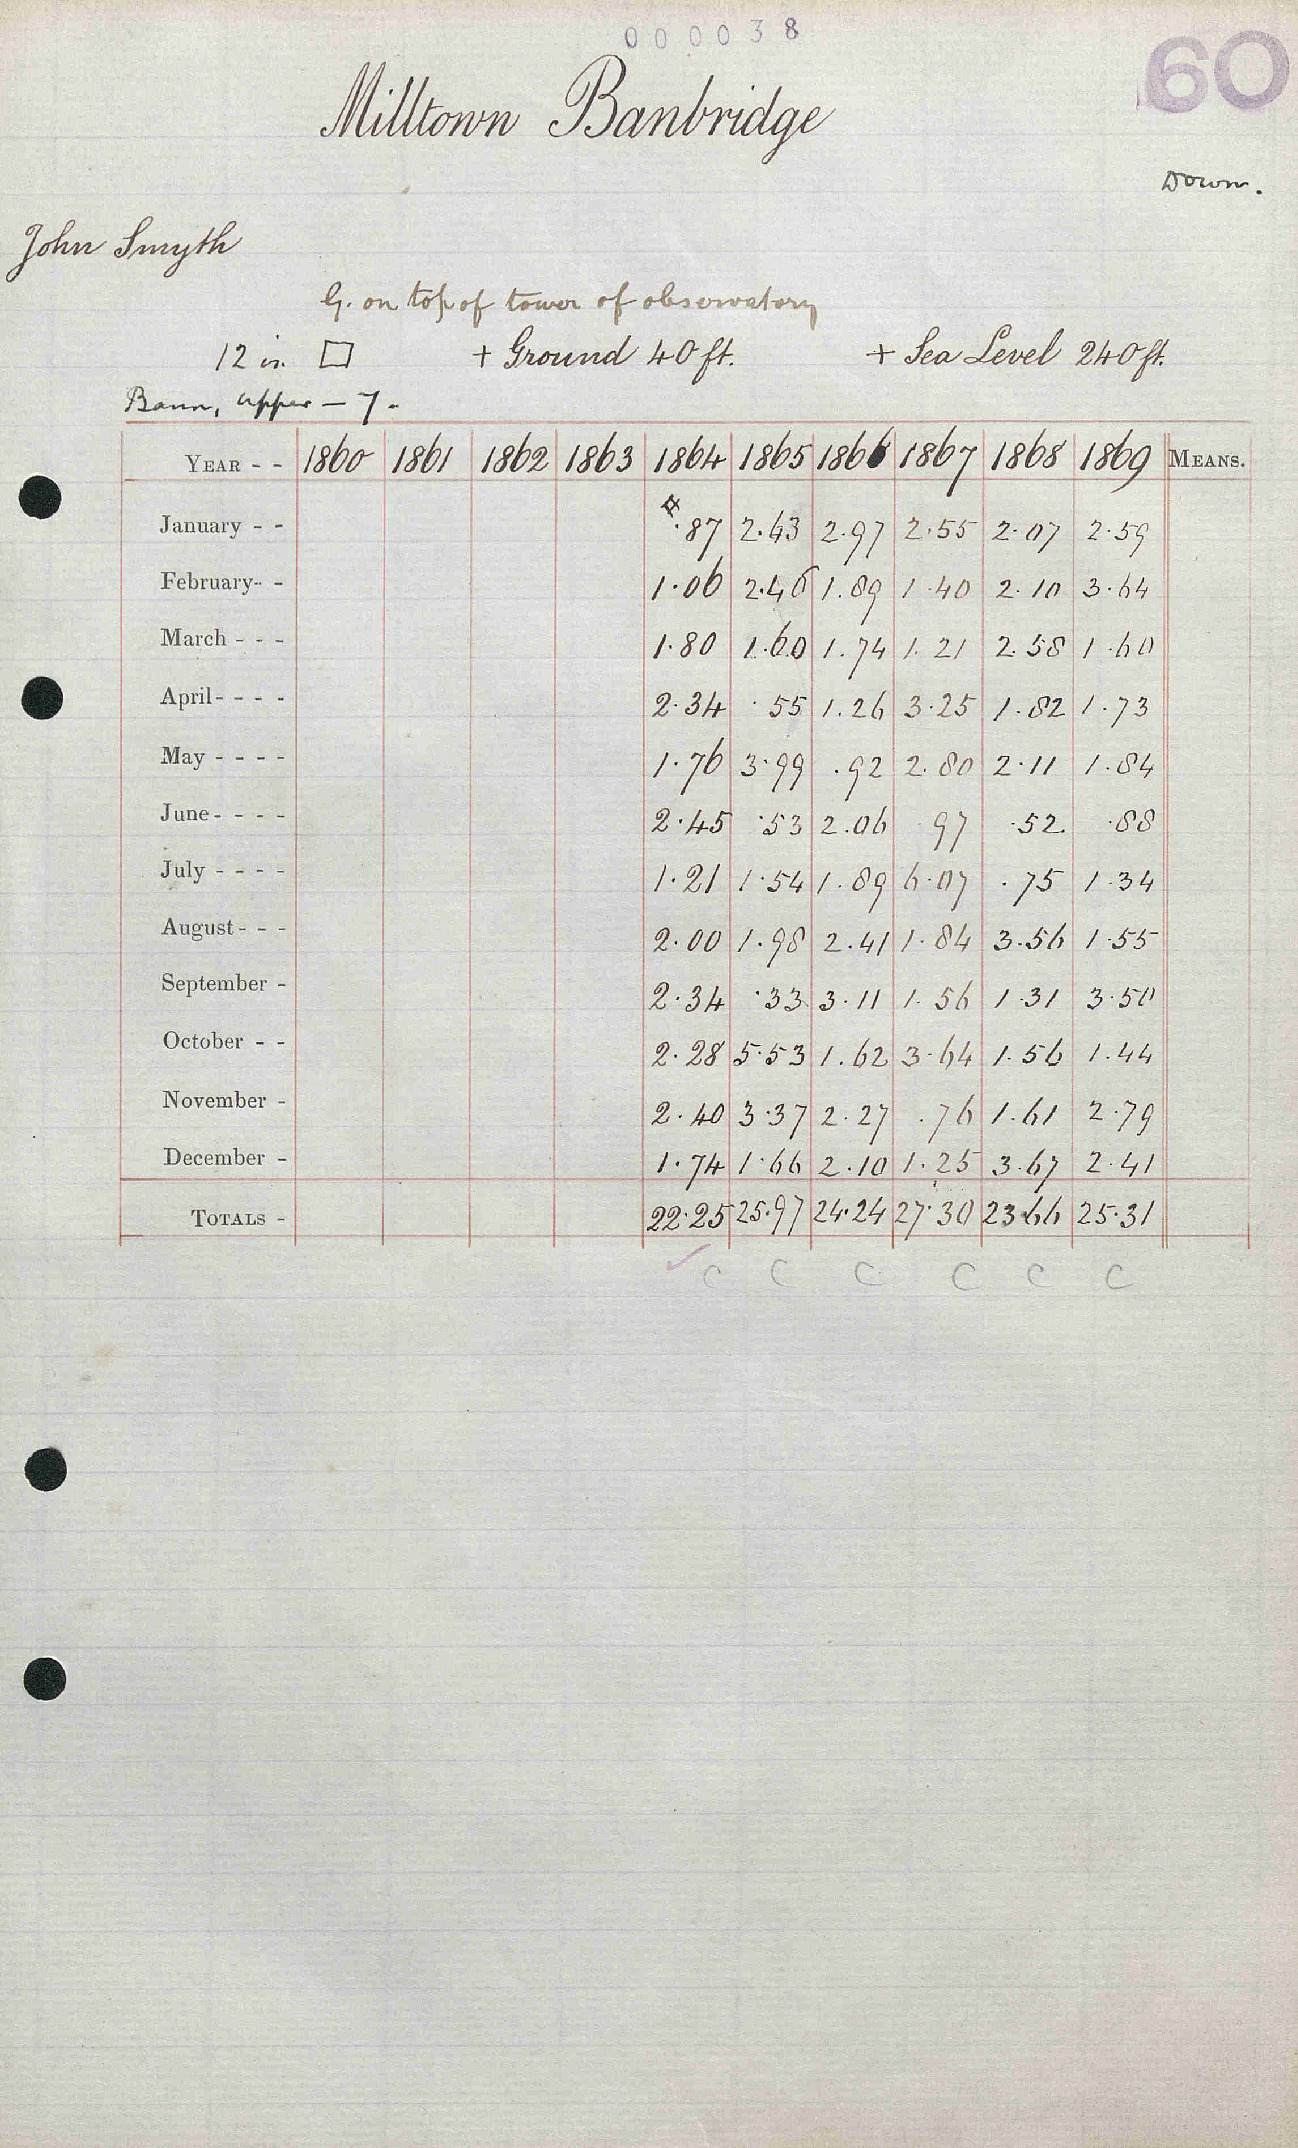 000038
60
Milltown Banbridge
Down.
John Smyth
G. on top of tower of observatory
12 in. □ + Ground 40 ft. + Sea Level 240 ft.
Bann, upper — 7.
YEAR - - 1860 1861 1862 1863 1864 1865 1866 1867 1868 1869 MEANS.
January - - #.87 2.43 2.97 2.55 2.07 2.59
February - - 1.06 2.46 1.89 1.40 2.10 3.64
March - - - 1.80 1.60 1.74 1.21 2.58 1.60
April - - - - 2.34 .55 1.26 3.25 1.82 1.73
May - - - - 1.76 3.99 .92 2.80 2.11 1.84
June - - - - 2.45 .53 2.06 .97 .52 .88
July - - - - 1.21 1.54 1.89 6.07 .75 1.34
August - - - 2.00 1.98 2.41 1.84 3.56 1.55
September - 2.34 .33 3.11 1.56 1.31 3.50
October - - 2.28 5.53 1.62 3.64 1.56 1.44
November - 2.40 3.37 2.27 .76 1.61 2.79
December - 1.74 1.66 2.10 1.25 3.67 2.41
TOTALS - 22.25 25.97 24.24 27.30 23.66 25.31
✓ C C C C C C